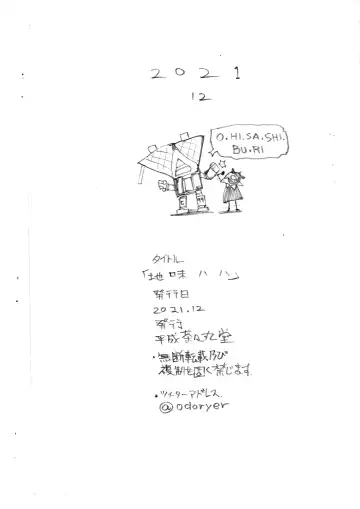 2021
12
O.HI.SA.SHI.
BU.RI
タイトル
「地味ハハ」
発行日
2021.12
発行
平成茶丸堂
・無断転載及び
複制を固く禁じます
・ツイッターアドレス
@odoryer